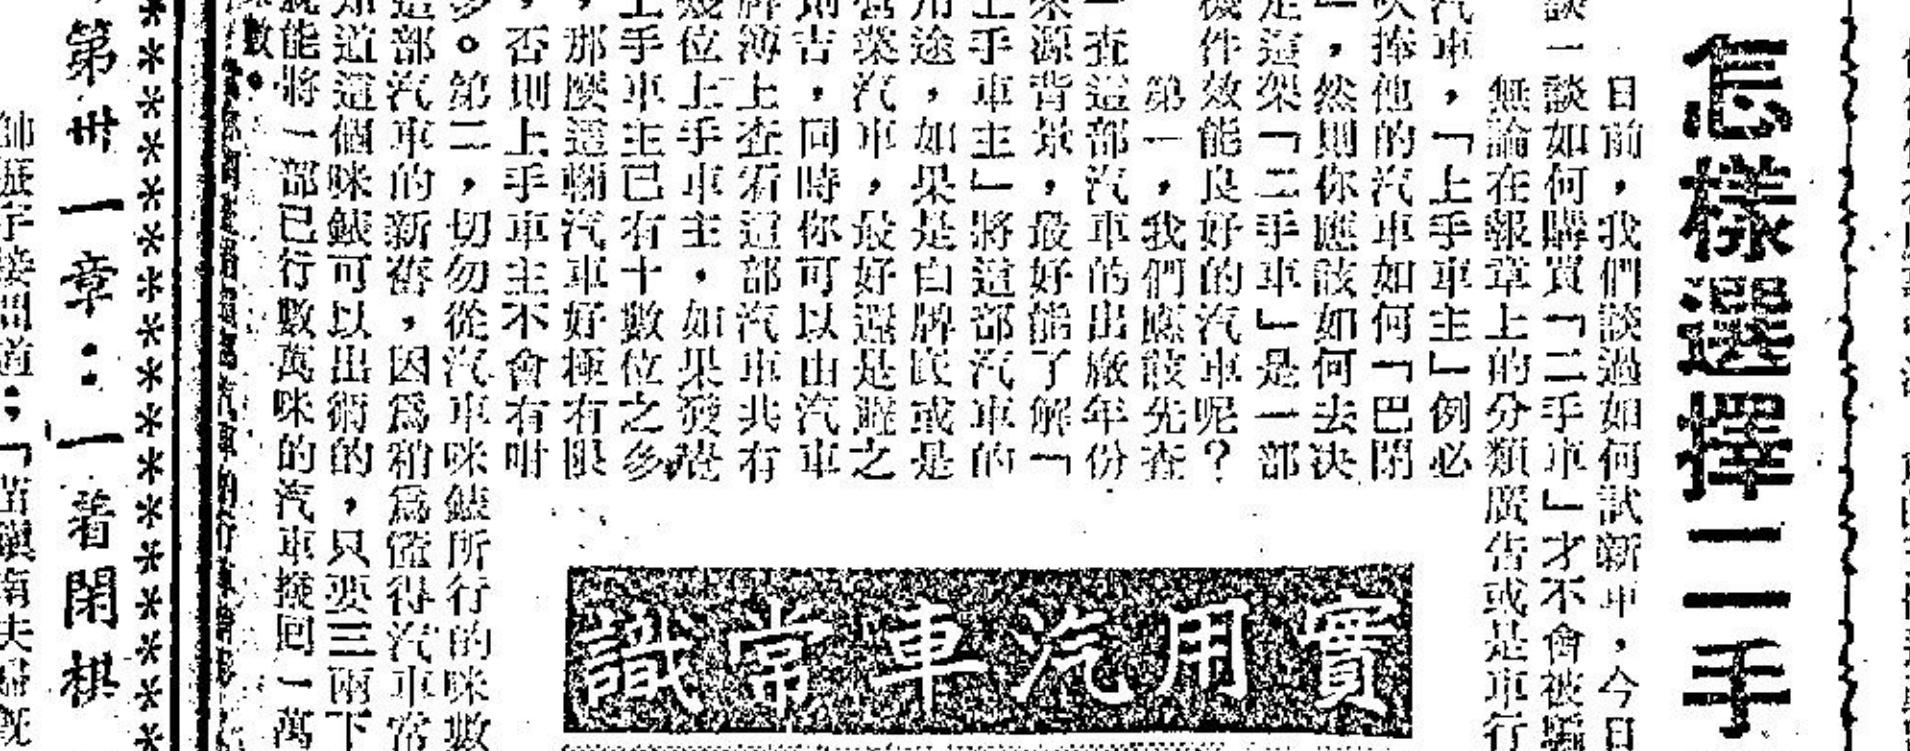 怎樣選擇二手
日前,我們談過如何試新車,今日
談一談如何購買「二手車」才不會被騙
無論在報章上的分類廣告或是車行
汽車,「上手車主」例必
吹捧他的汽車如何「巴閉
」,然則你應該如何去决
定這架「二手車」是一部
機件效能良好的汽車呢?
第一,我們應該先查
一查這部汽車的出廠年份
來源背景,最好能了解「
上手車主」將這部汽車的
用途,如果是白牌民或是
營業汽車,最好還是避之
則吉,同時你可以由汽車
牌簿上查看這部汽車共有
幾位上手車主,如果發覺
上手車主已有十數位之多
,那麽這輛汽車好極有限
,否則上手車主不會有咁
實用汽車常識
多。第二,切勿從汽車咪錶所行的咪數
這部汽車的新舊,因爲稍爲懂得汽車常
知道這個咪錶可以出術的,只要三兩下
就能將一部已行數萬咪的汽車撥回一萬
咪數。
第卅一章:一着閑棋
接問道:「